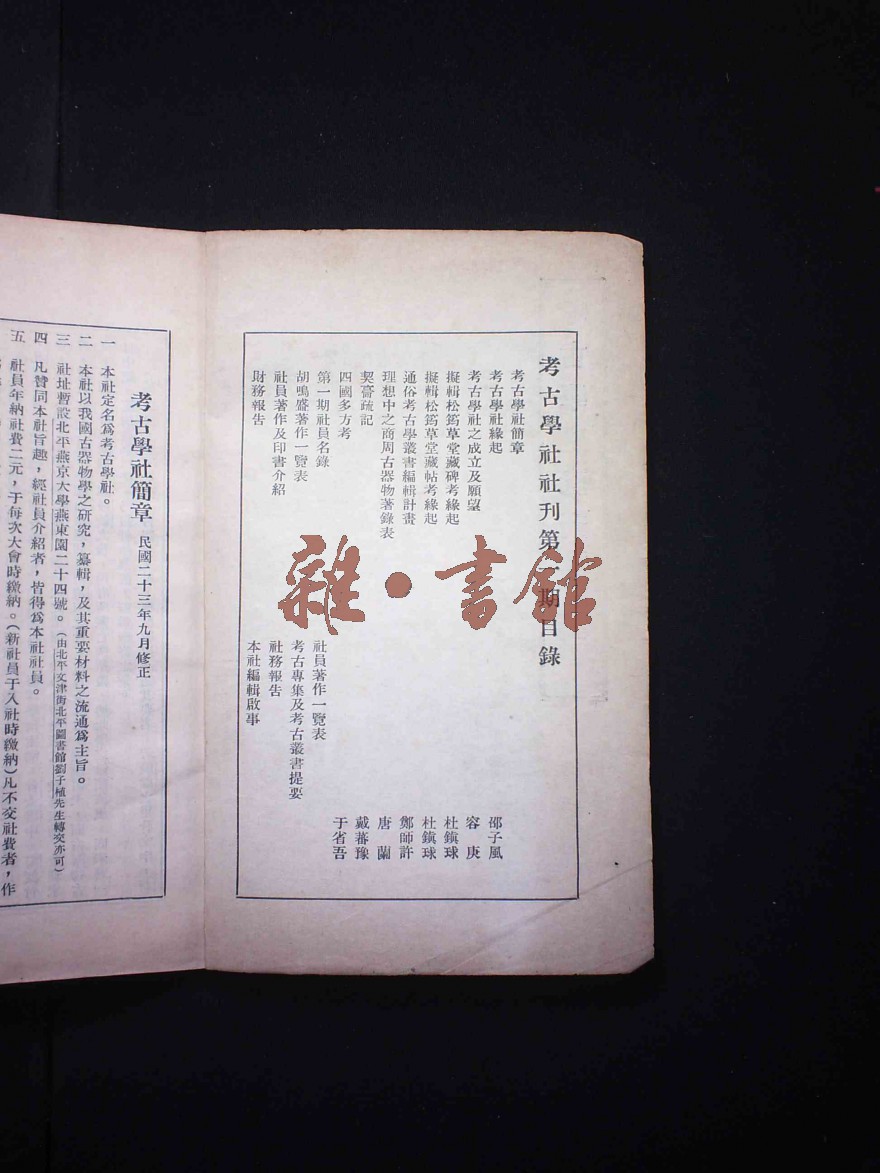 考古學社社刊第一期目錄
考古學社簡章
考古學社緣起 邵子風
考古學社之成立及願望 容庚
擬輯松筠草堂藏碑考緣起 杜鎮球
擬輯松筠草堂藏帖考緣起 杜鎮球
通俗考古學叢書編輯計畫 鄭師許
理想中之商周古器物著錄表 唐蘭
契䯧疏記 戴蕃豫
四國多方考 于省吾
第一期社員名錄 社員著作一覽表
胡鳴盛著作一覽表 考古專集及考古叢書提要
社員著作及印書介紹 社務報告
財務報告 本社編輯啟事
雜·書館
考古學社簡章 民國二十三年九月修正
一 本社定名爲考古學社。
二 本社以我國古器物學之研究,纂輯,及其重要材料之流通爲主旨。
三 社址暫設北平燕京大學燕東園二十四號。(由北平文津街北平圖書館劉子植先生轉交亦可)
四 凡贊同本社旨趣,經社員介紹者,皆得爲本社社員。
五 社員年納社費二元,于每次大會時繳納。(新社員于入社時繳納)凡不交社費者,作